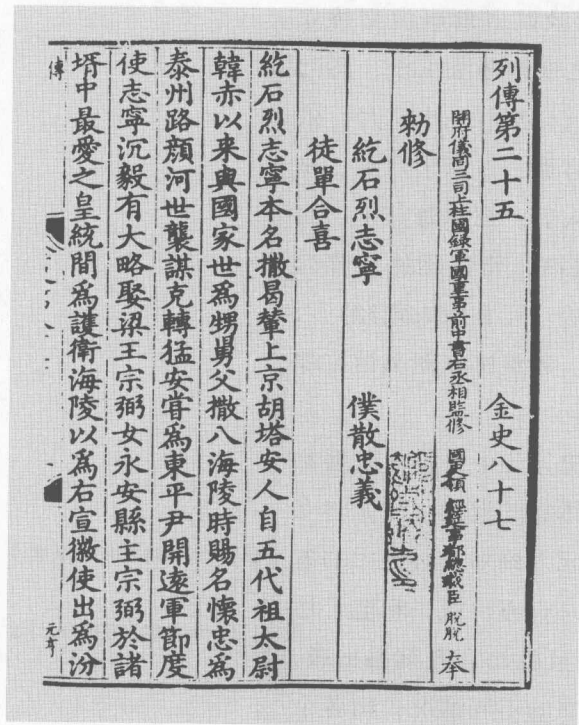 列傳第二十五 金史八十七
開府儀同三司上柱國錄軍國重事前中書右丞相監修 國史領 經筵事都總裁臣 脫脫 奉
勑修
紇石烈志寧 僕散忠義
徒單合喜
紇石烈志寧本名撒曷輦上京胡塔安人自五代祖太尉
韓赤以来與國家世爲甥舅父撒八海陵時賜名懷忠爲
泰州路顔河世襲謀克轉猛安甞爲東平尹開逺軍節度
使志寧沉毅有大略娶梁王宗弼女永安縣主宗弼於諸
壻中最愛之皇統間爲護衛海陵以爲右宣徽使出爲汾
傳
元亨